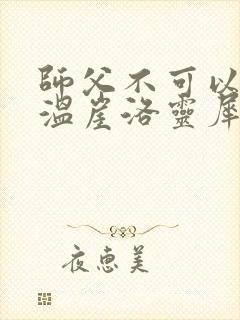 師父不可以
溫崖洛靈犀
夜惠美